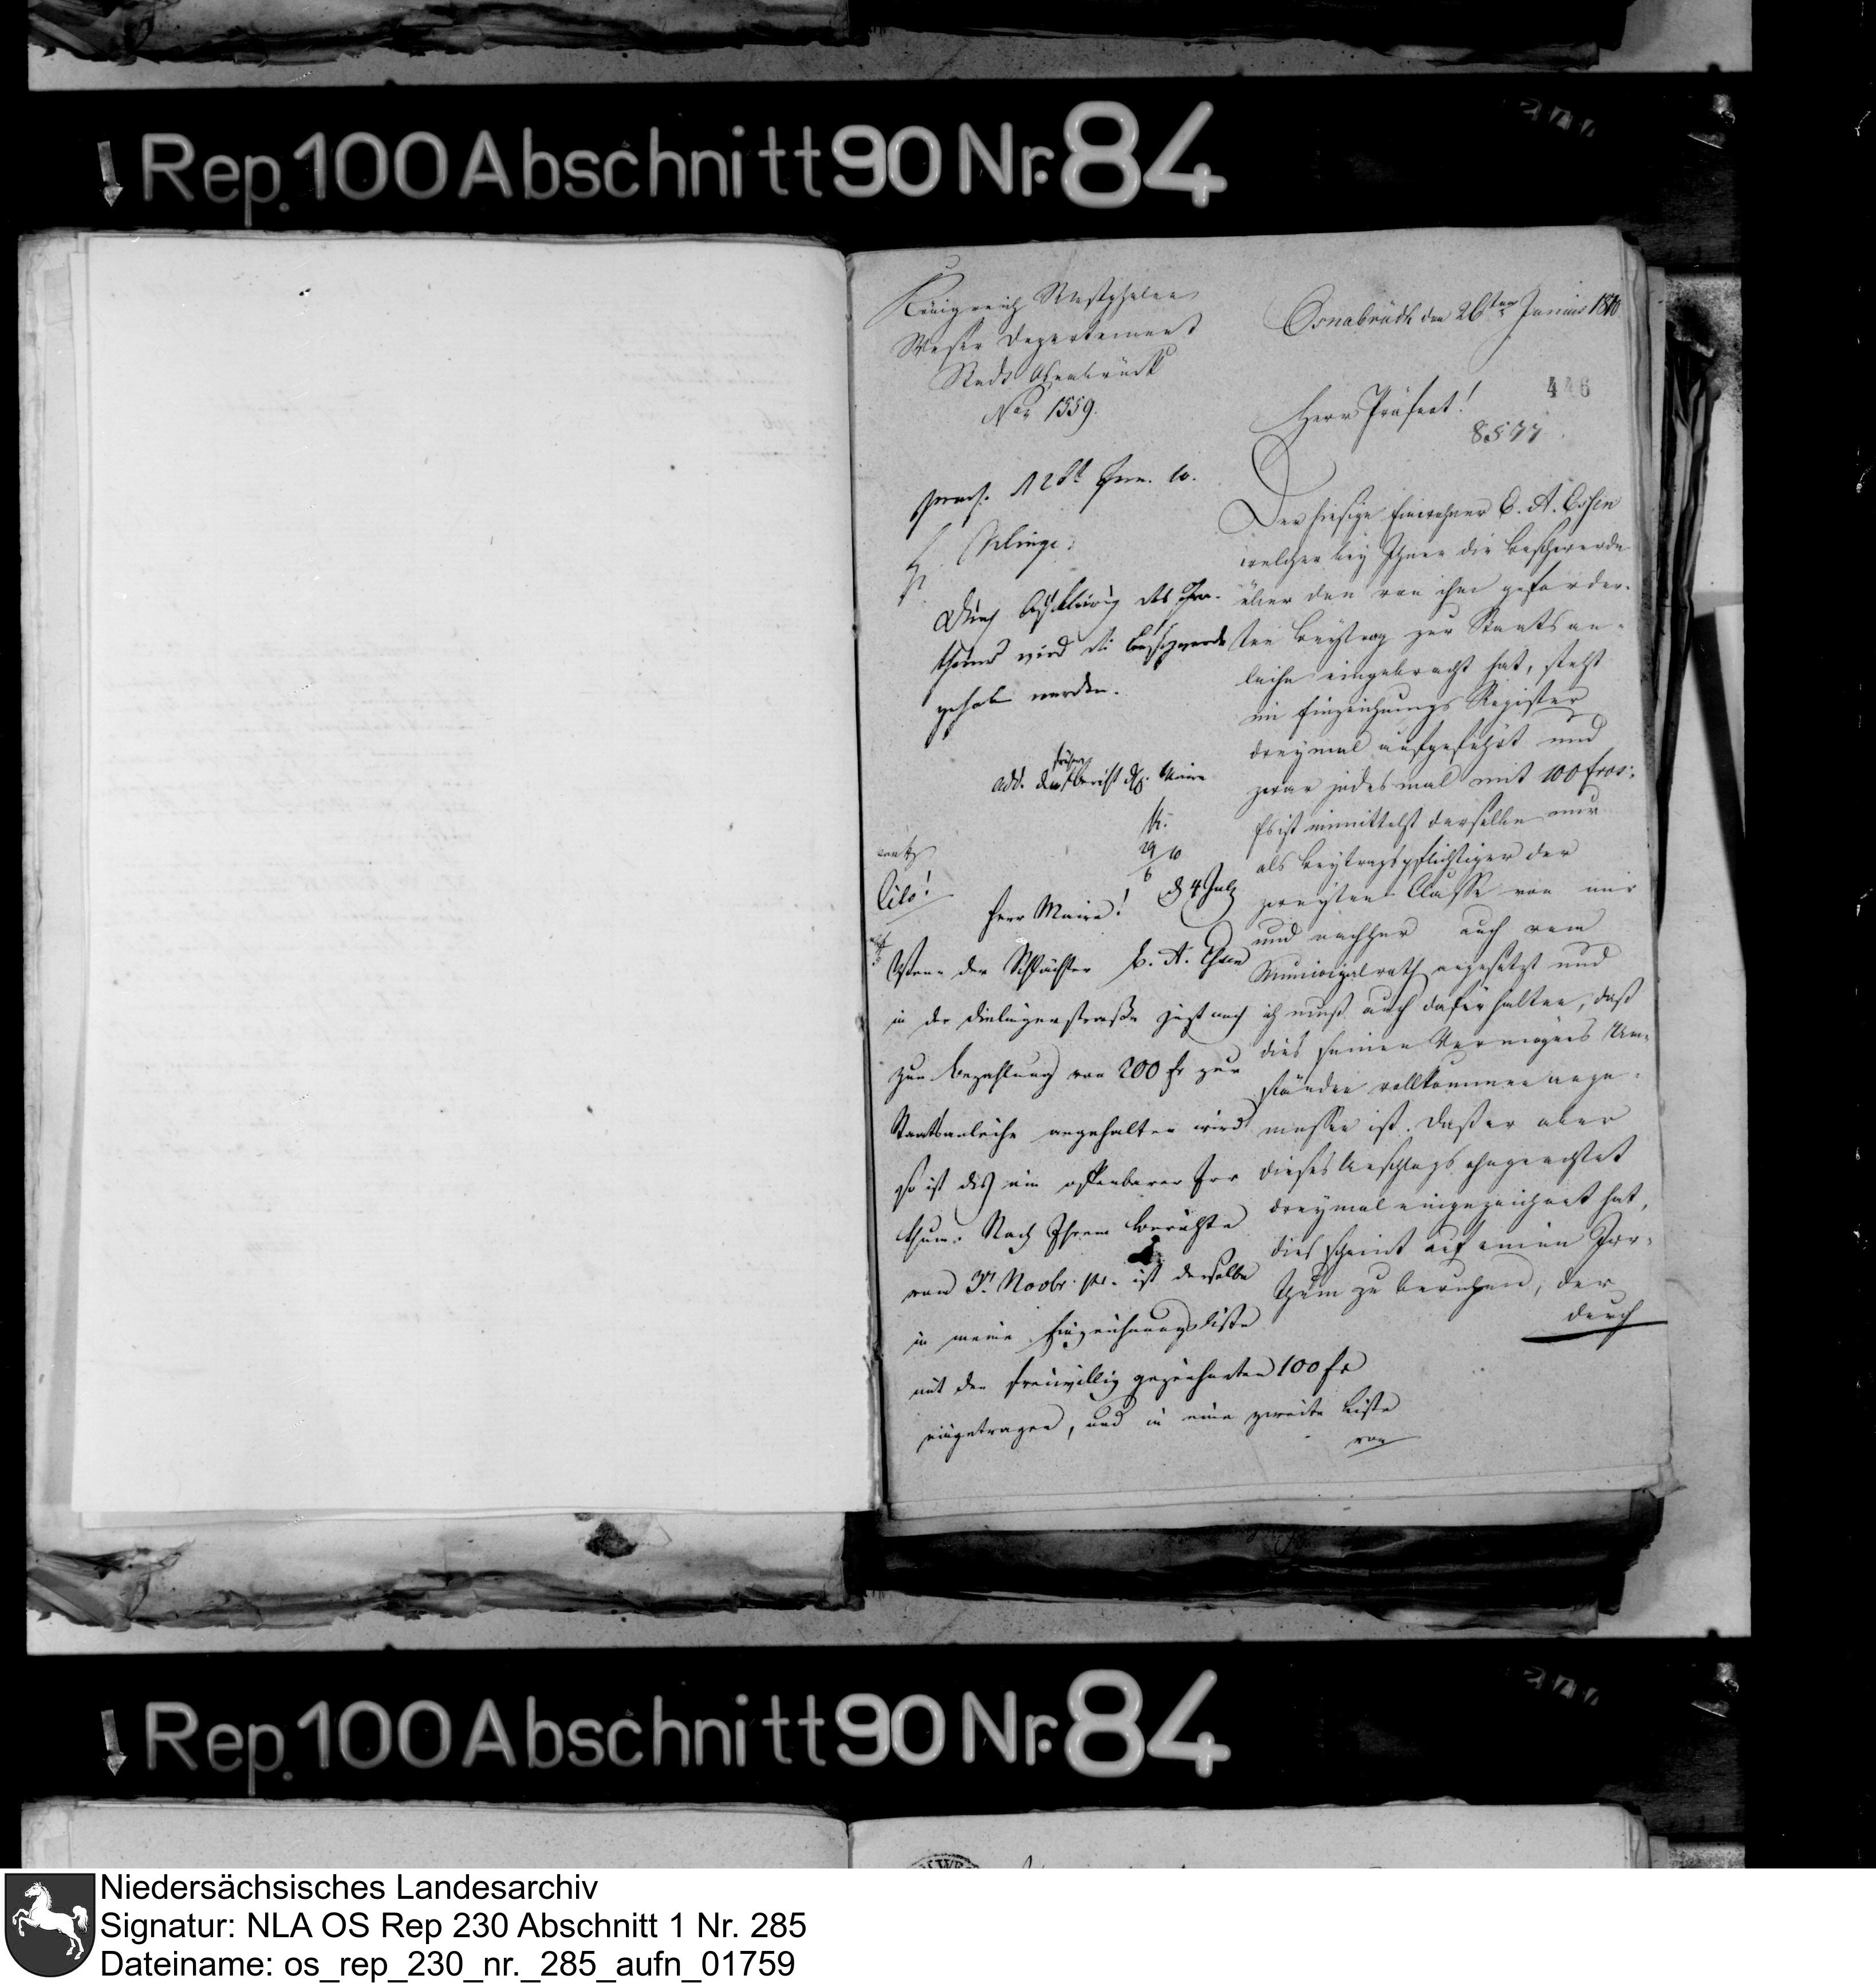 Rep. 100 Abschnitt 90 Nr. 84
Königreich Westphalen
Weser Departement
Stadt Osnabrück
No. 1559.
Osnabrück den 26ten Junius 1810
446
Herr Präfect!
8577
Der hiesige Einwohner C. A. Essen
welcher bey Ihnen die Beschwerde
über den von ihm geforder-
ten Beytrag zur Staatsan-
leihe eingebracht hat, steht
im Einzeichnungs Register
dreymal aufgeführt und
zwar jedesmal mit 100 Frcs:
Es ist inmittelst derselbe nur
als Beytragspflichtiger der
zweyten Classe von mir
und nachher auch vom
Municipalrath angesetzt und
ich muß auch dafür halten, daß
dies seinen Vermögens Um-
ständen vollkommen ange-
messen ist. Daß er aber
dieses Anschlags ohngeachtet
dreymal eingezeichnet hat,
dies scheint auf einen Irr-
thum zu beruhen, der
durch
praes. 28t Jun. 10.
H.
Durch des Irr-
thums wird die Beschwerde
gehoben werden.
früherer
Bericht des Maire
29/6 10
d 4 July
Cito!
Herr Maire!
Wenn der Schlächter C. A. Essen
in der Dielingerstraße jetzt noch
zur Bezahlung von 200 fr zur
Staatsanleihe angehalten wird
so ist dies ein offenbarer Irr
thum. Nach Ihrem Berichte
vom 3t. Novbr. pr. ist derselbe
in meine Einzeichnungsliste
mit den freiwillig gezeichneten 100 fr
eingetragen, und in eine zweite Liste
von
Rep. 100 Abschnitt 90 Nr. 84
Niedersächsisches Landesarchiv
Signatur: NLA OS Rep 230 Abschnitt 1 Nr. 285
Dateiname: os_rep_230_nr._285_aufn_01759